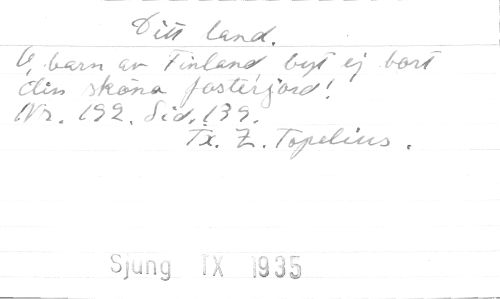 Ditt land.
O, barn av Finland byt ej bort
din sköna fosterjord!
Nr. 192. Sid. 139.
Tx. Z. Topelius.
Sjung IX 1935